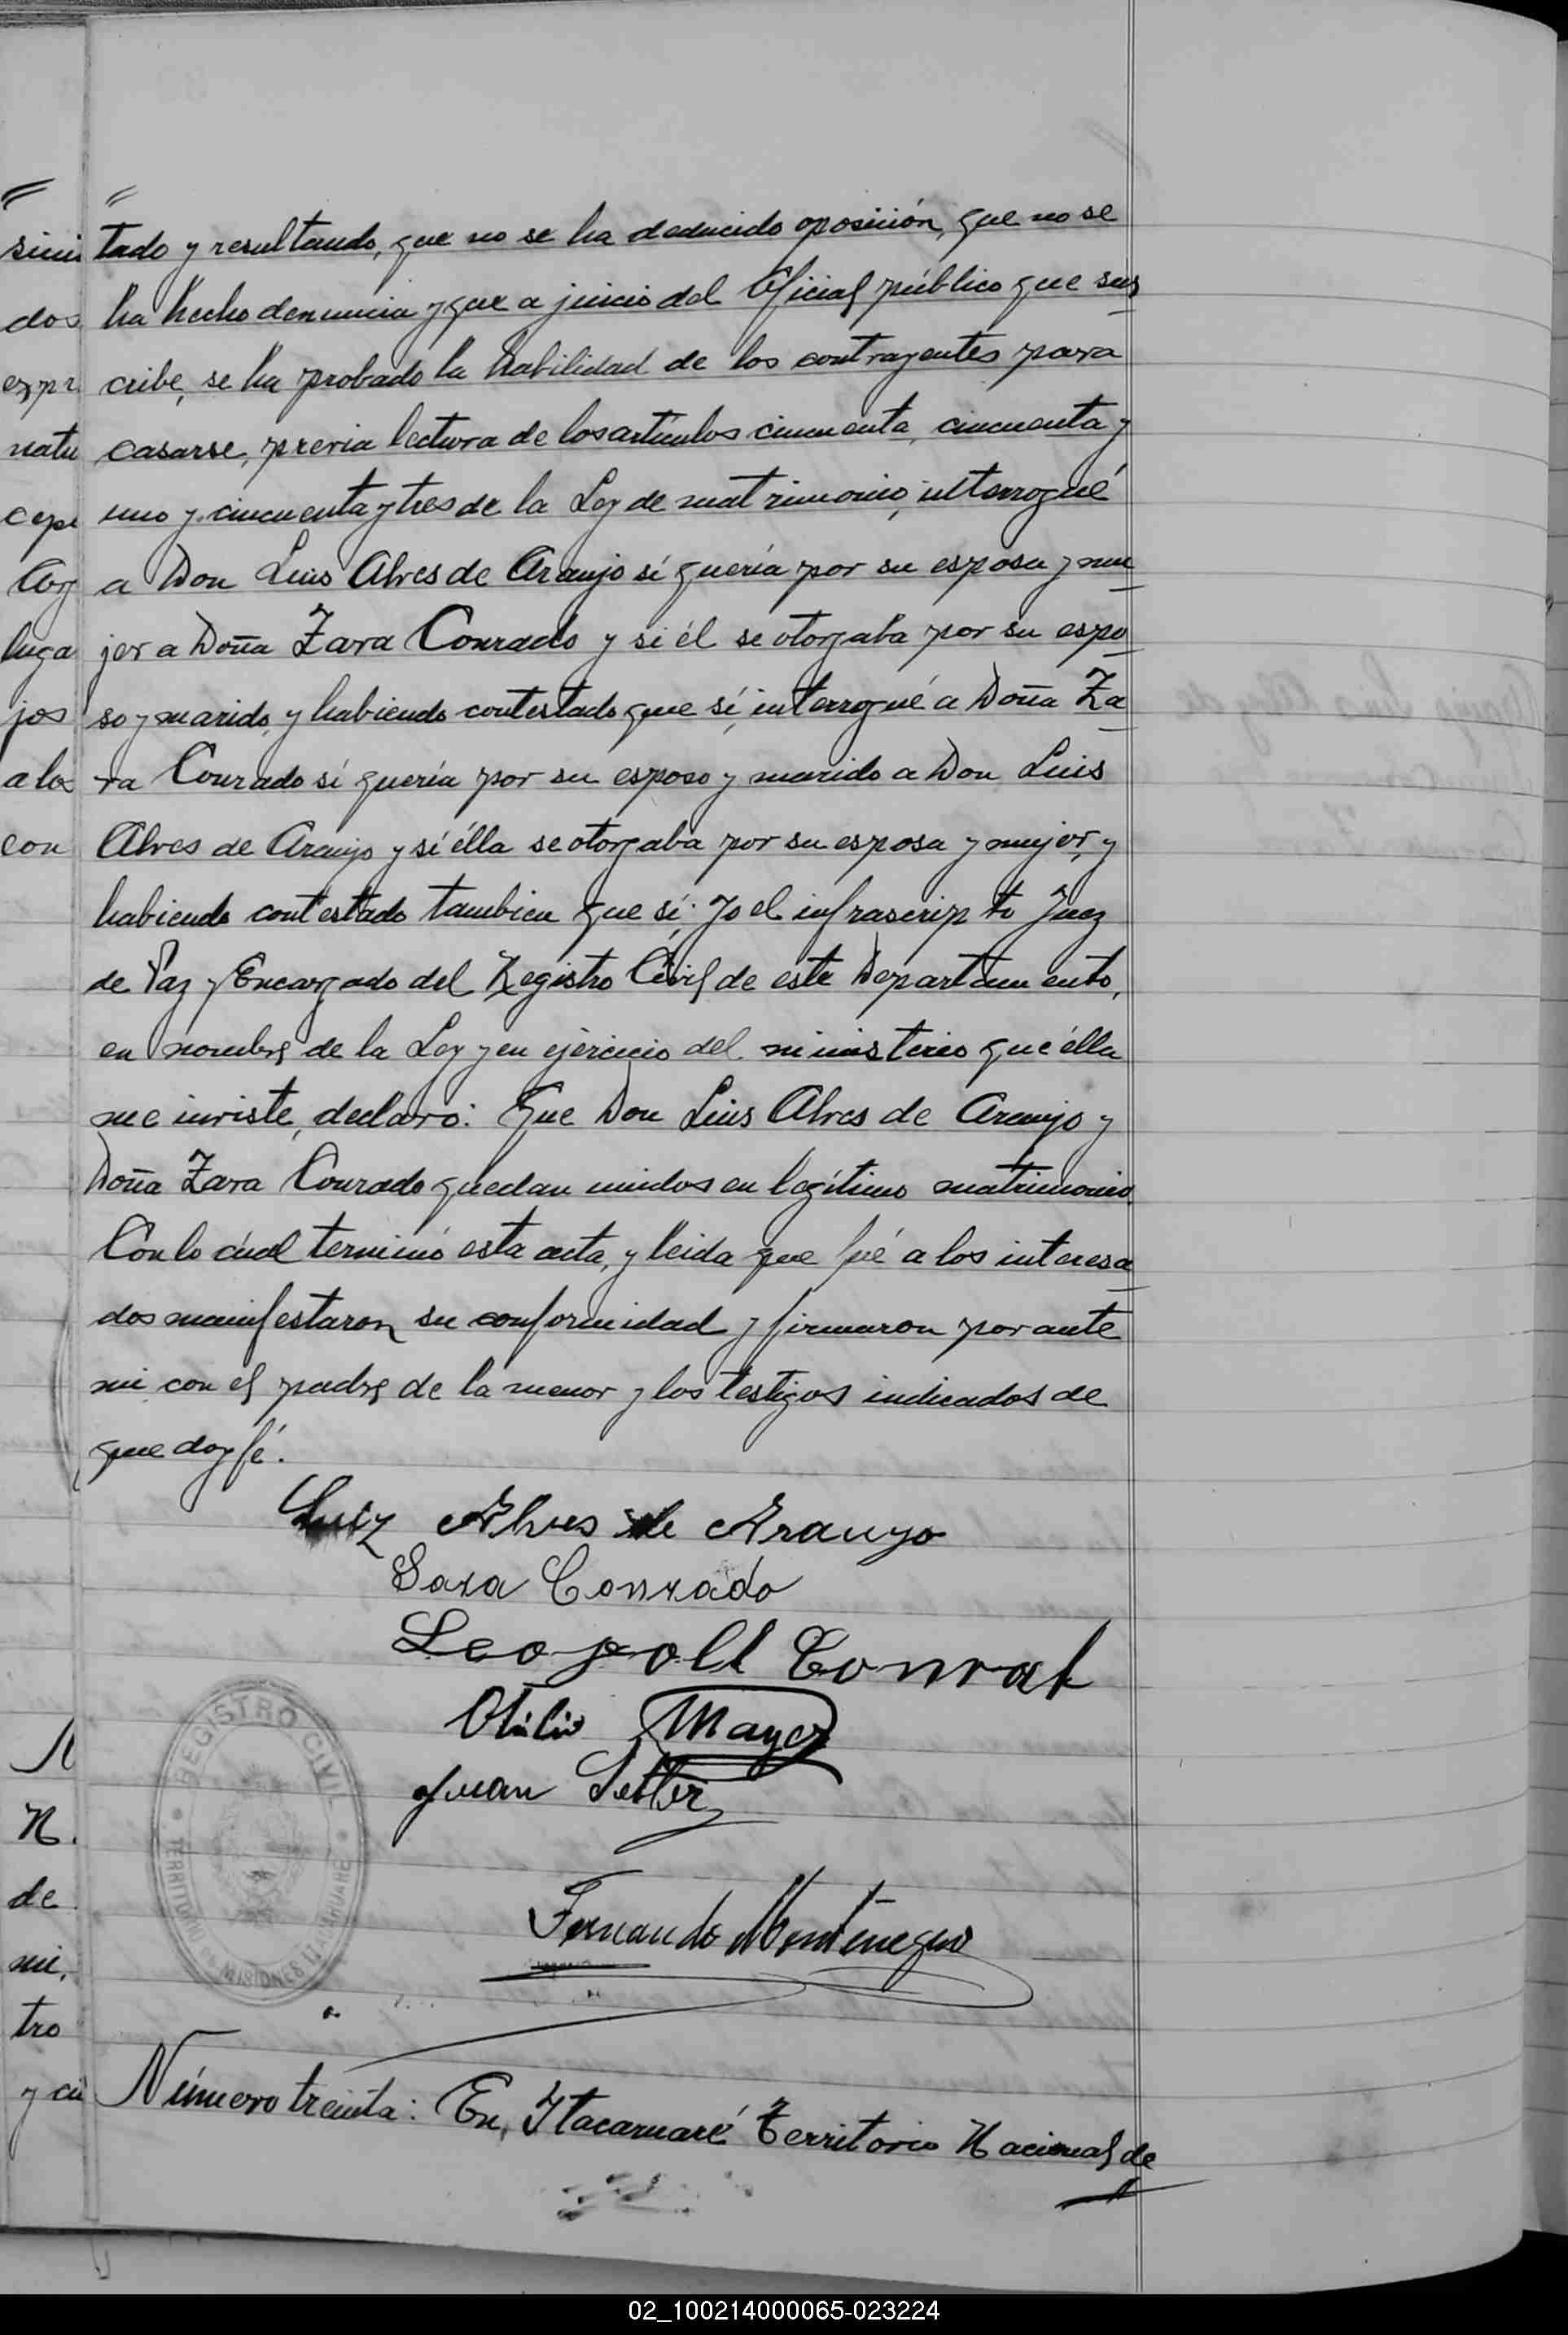 =
tado y resultando, que no se ha deducido oposición, que no se
ha hecho denuncia y que a juicio del Oficial público que sus
cribe, se ha probado la habilidad de los contrayentes para
casarse, previa lectura de los artículos cincuenta, cincuenta y
uno y cincuenta y tres de la Ley de matrimonio, interrogué
a Don Luis Alves de Araujo sí quería por su esposa y mu
jer a Doña Zara Conrado y si él se otorgaba por su espo
so y marido, y habiendo contestado que sí, interrogué a Doña Za
ra Conrado sí quería por su esposo y marido a Don Luis
Alves de Araujo y sí élla se otorgaba por su esposa y mujer, y
habiendo contestado tambien que sí; Yo el infrascripto Juez
de Paz y Encargado del Registro Civil de este Departamento,
en nombre de la Ley y en ejercicio del ministerio que élla
me inviste, declaro: Que Don Luis Alves de Araujo y
Doña Zara Conrado quedan unidos en legítimo matrimonio.
Con lo cúal terminó esta acta, y leida que fué a los interesa
dos manifestaron su conformidad y firmaron por ante
mi con el padre de la menor y los testigos indicados de
que doy fé.
Luiz Alves de Araujo
Sara Conrado
Leopold Conrat
Otilio Mayer
Juan
Fernando Montenegro
REGISTRO CIVIL
TERRITORIO DE MISIONES ITACARUARE
Número treinta: En, Itacaruaré Territorio Nacional de
sini
dos
expr
natu
luga
jos
a los
con
N.
de
mi,
tro
02_100214000065-023224